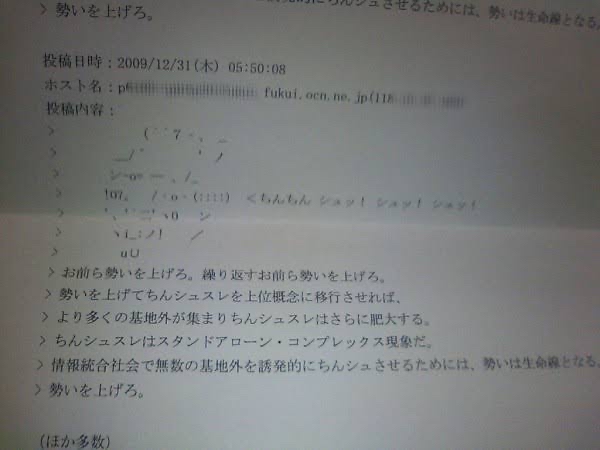 ちんシュさせるためには、勢いは生命線となる。
> 勢いを上げろ。
投稿日時：2009/12/31(木) 05:50:08
ホスト名：p fukui.ocn.ne.jp(118
投稿内容：
>
>
>
> ＜ちんちん シュッ！ シュッ！ シュッ！
>
>
> uU
> お前ら勢いを上げろ。繰り返すお前ら勢いを上げろ。
> 勢いを上げてちんシュスレを上位概念に移行させれば、
> より多くの基地外が集まりちんシュスレはさらに肥大する。
> ちんシュスレはスタンドアローン・コンプレックス現象だ。
> 情報統合社会で無数の基地外を誘発的にちんシュさせるためには、勢いは生命線となる。
> 勢いを上げろ。
(ほか多数)